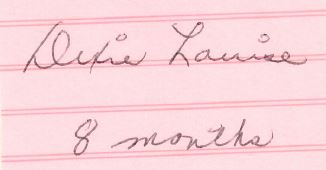 Dixie Louise
8 months